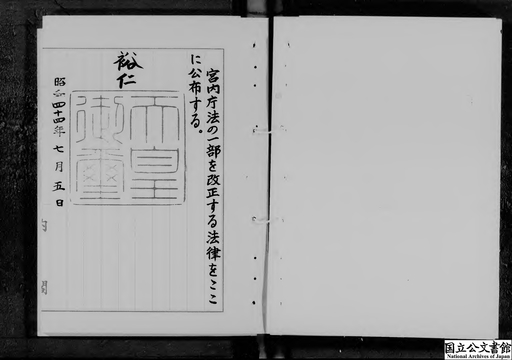 宮内庁法の一部を改正する法律をここ
に公布する。
裕仁
天皇
御璽
昭和四十四年七月五日
国立公文書館
National Archives of Japan